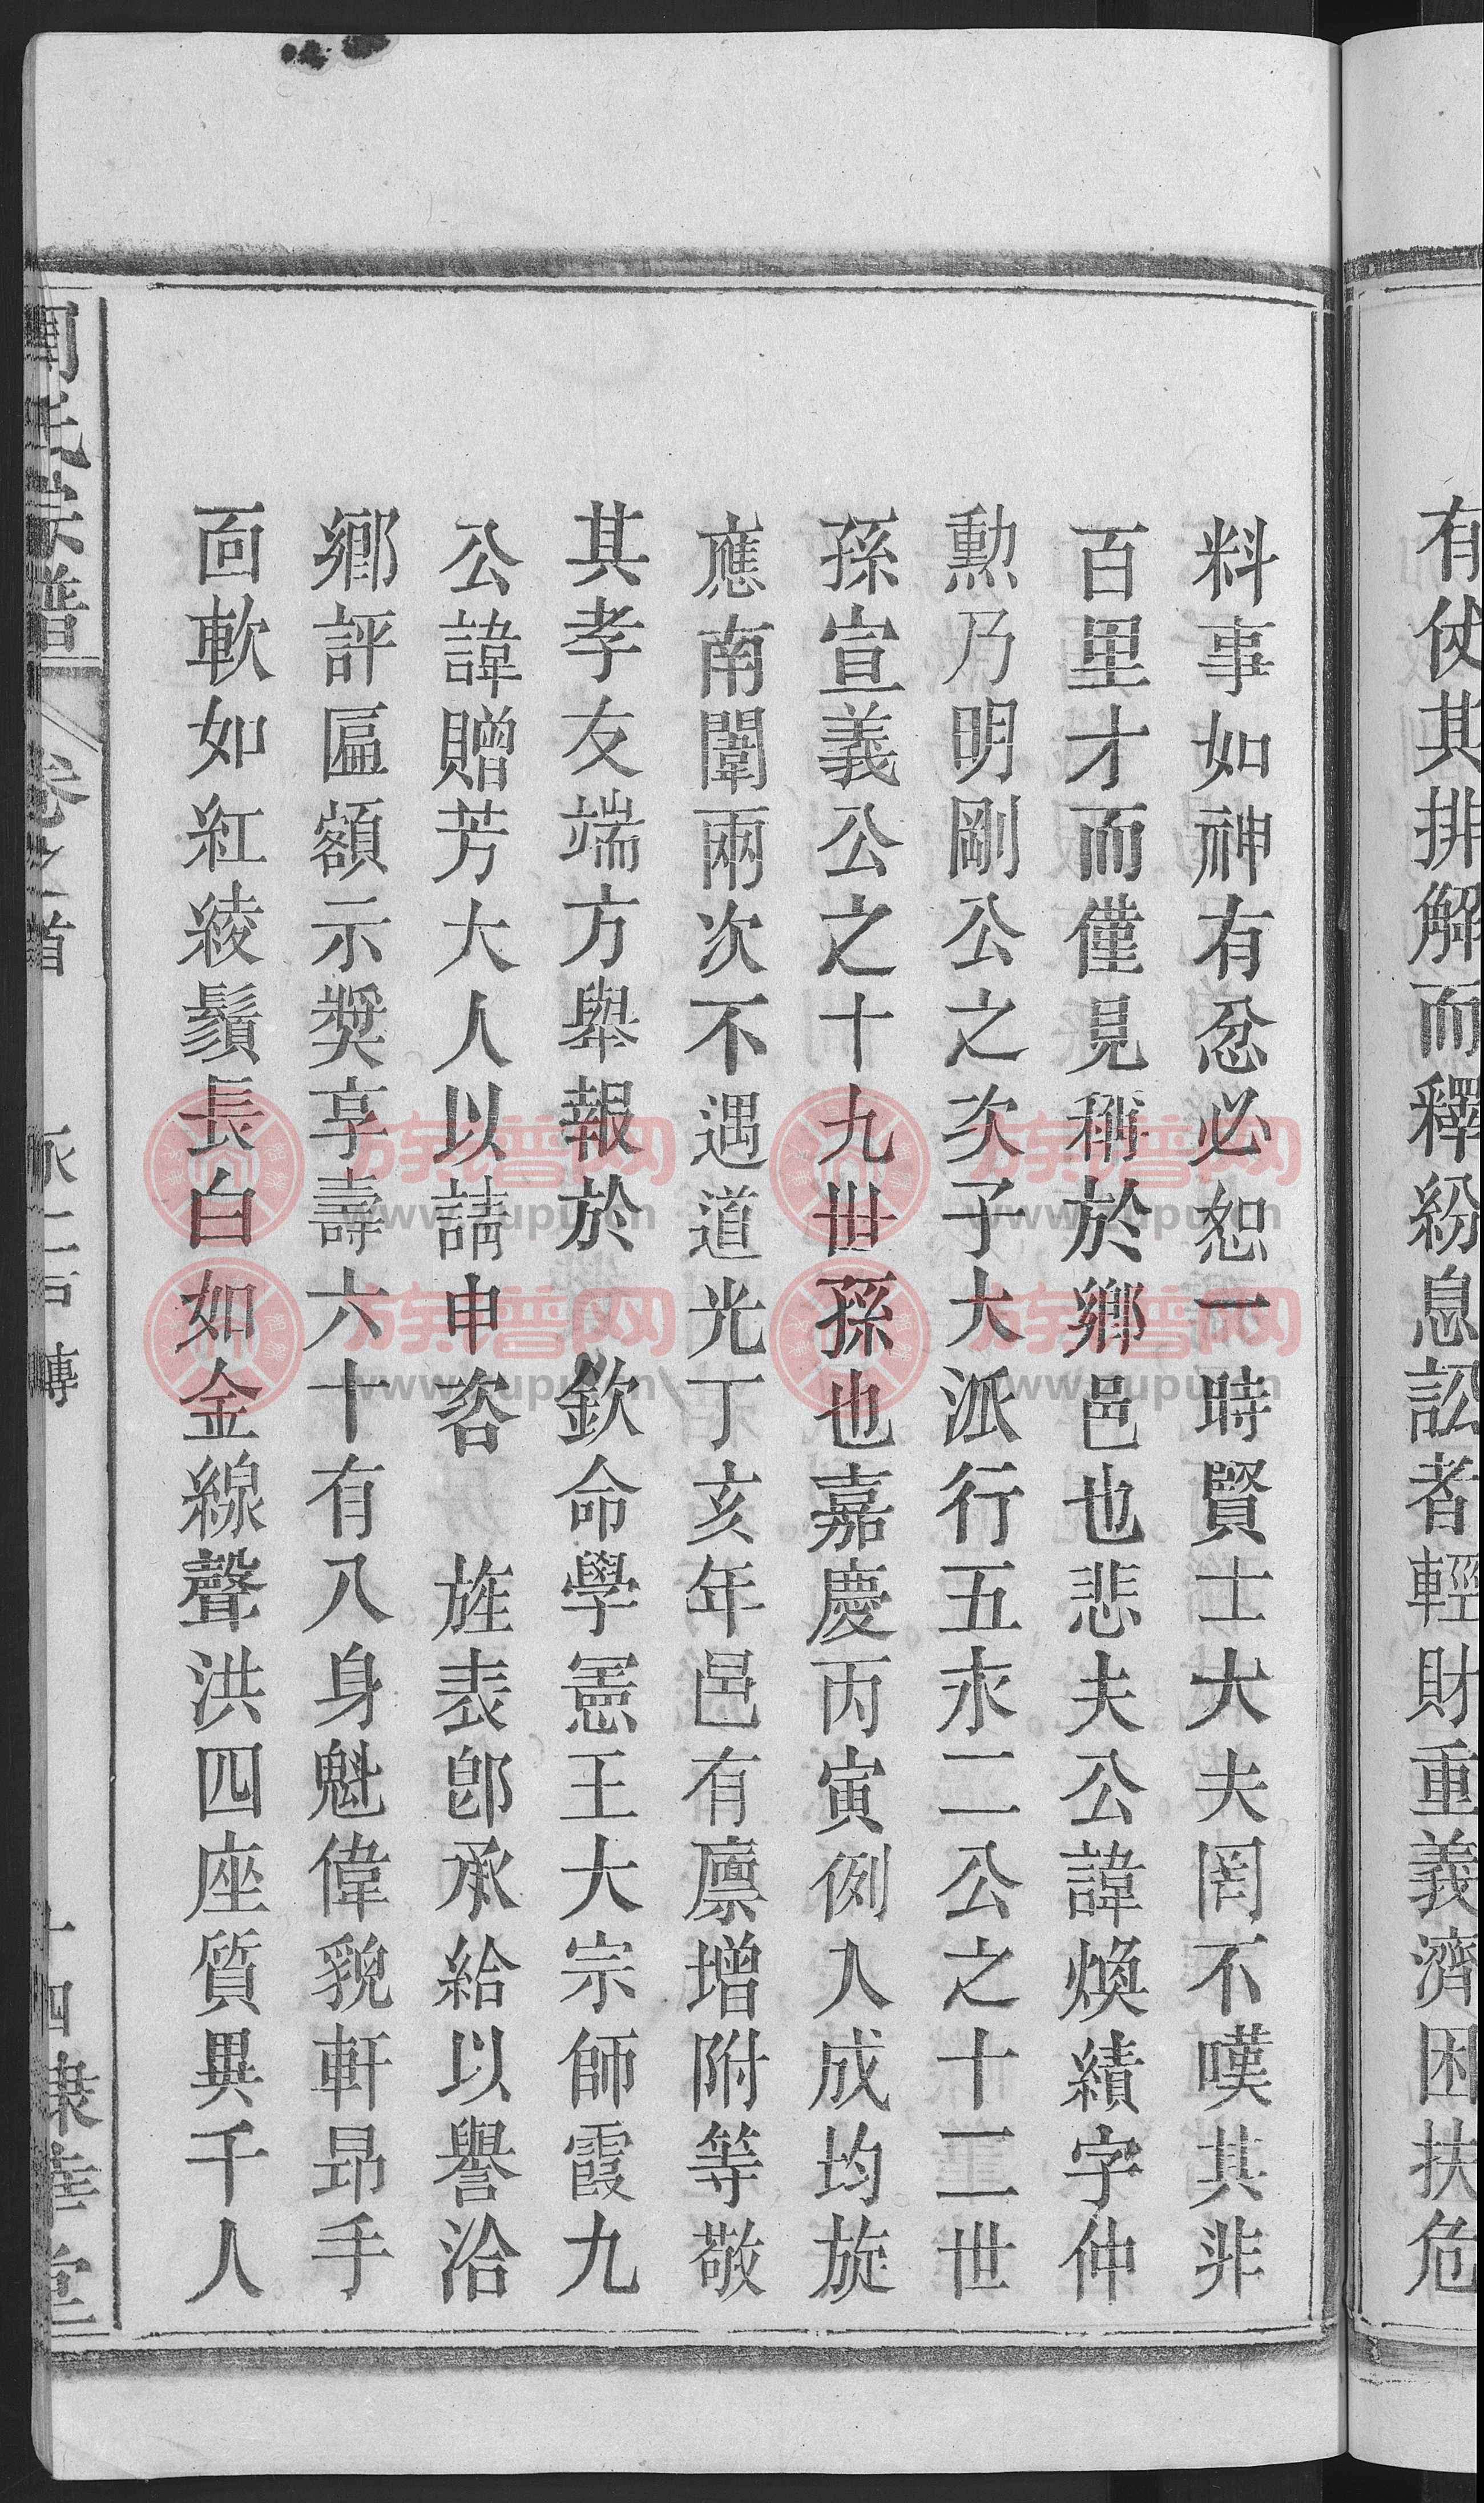 有仗其排解而釋紛息訟者輕財重義濟困扶危
料事如神有忿必恕一時賢士大夫罔不嘆其非
百里才而僅見稱於鄉邑也悲夫公諱煥績字仲
勳乃明剛公之次子大派行五永二公之十二世
孫宣義公之十九世孫也嘉慶丙寅例入成均旋
應南闈兩次不遇道光丁亥年邑有廪增附等敬
其孝友端方舉報於 欽命學憲王大宗師霞九
公諱贈芳大人以請申咨 旌表卽承給以譽洽
鄉評匾額示奬享壽六十有八身魁偉貌軒昂手
面軟如紅綾鬚長白如金線聲洪四座質異千人
氏宗譜 卷之首 派二戶傳 十四 棣華堂
族谱网
www.zupu.cn
族谱网
www.zupu.cn
族谱网
www.zupu.cn
族谱网
www.zupu.cn